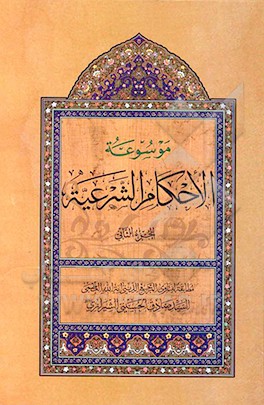 مَوْسُوعَةُ
الأَحْكَامِ الشَّرْعِيَّةِ
الجزء الثاني
مطابقة لفتاوى المرجع الديني آية الله العظمى
السيد صادق الحسيني الشيرازي